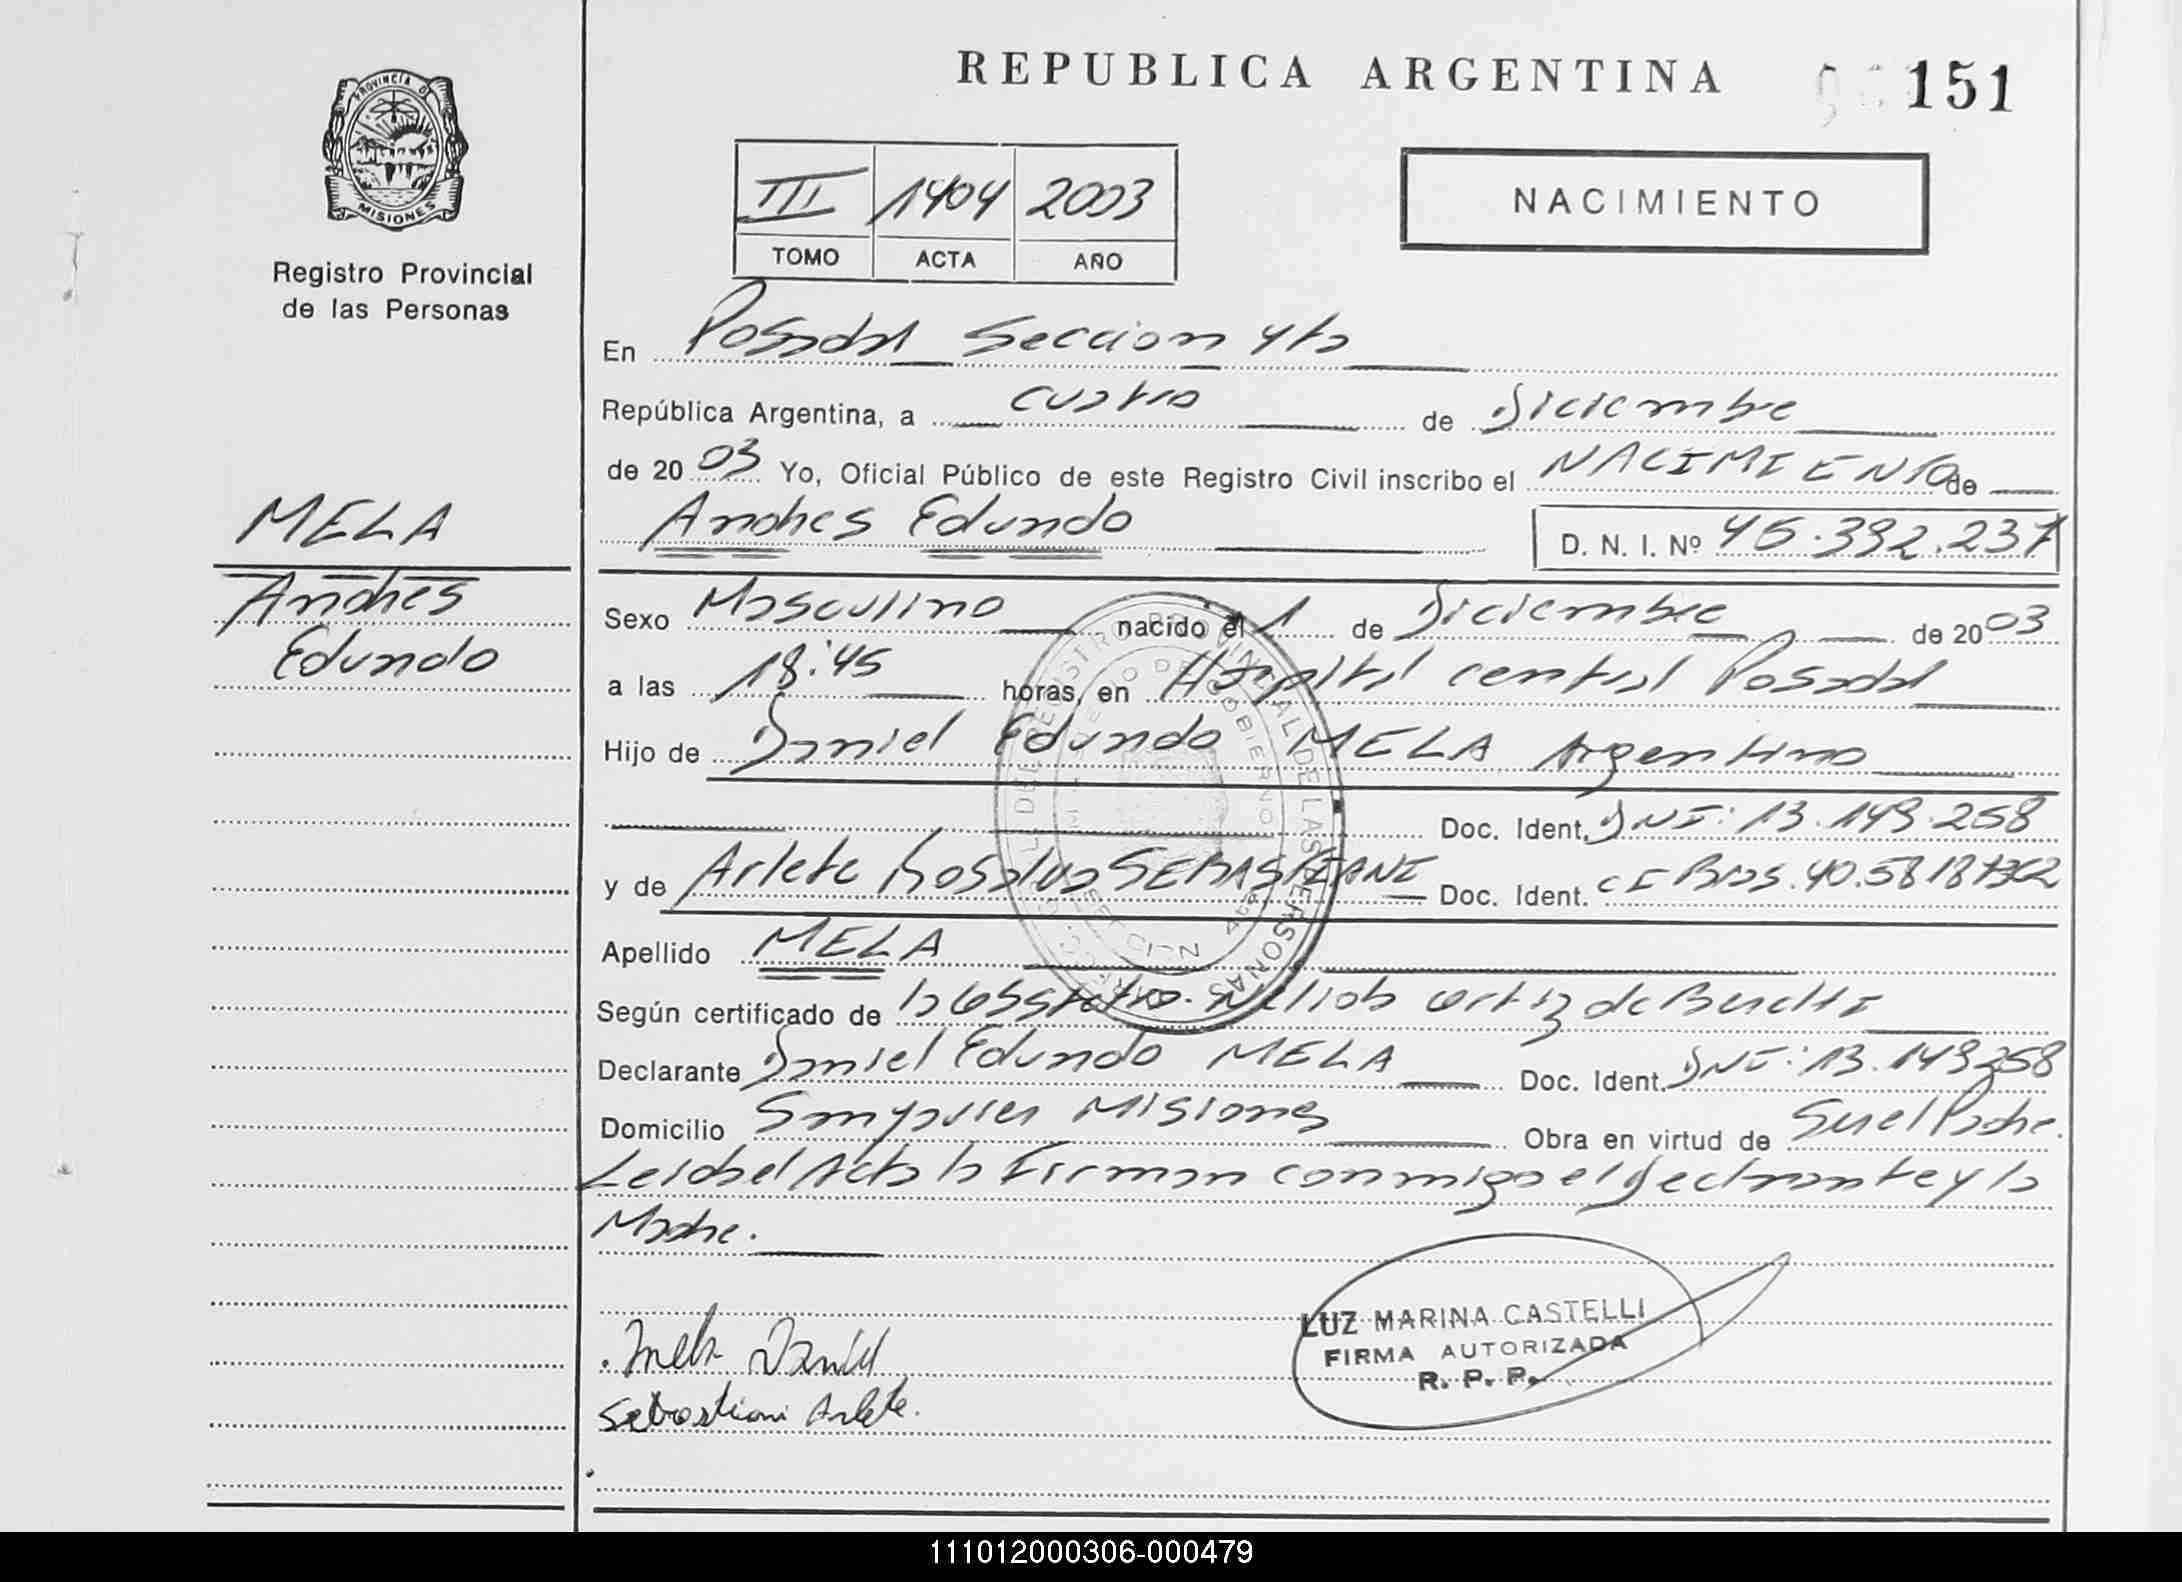 REPUBLICA ARGENTINA
151
PROVINCIA D
MISIONES
Registro Provincial
de las Personas
III 1404 2003
TOMO ACTA AÑO
NACIMIENTO
En Posadas Seccion 4ta
República Argentina, a cuatro de Diciembre
de 2003 Yo, Oficial Público de este Registro Civil inscribo el NACIMIENTO de
Andres Edundo D. N. I. Nº 45.392.237
MELA
Andres
Edundo
Sexo Masculino nacido el 1 de Diciembre de 2003
a las 18:45 horas, en Hospital central Posadas
Hijo de Daniel Edundo MELA Argentino
Doc. Ident. DNI: 13.149.258
y de Arlete SEBASTIANI Doc. Ident. CI
Apellido MELA
Según certificado de la Obstetra. Ortiz de
Declarante Daniel Edundo MELA Doc. Ident. DNI: 13.149258
Domicilio Misiones Obra en virtud de Ser el Padre.
Leida el Acta la Firman conmigo el Declarante y la
Madre.
Mela Daniel
Sebastiani Arlete.
LUZ MARINA CASTELLI
FIRMA AUTORIZADA
R. P. P.
111012000306-000479